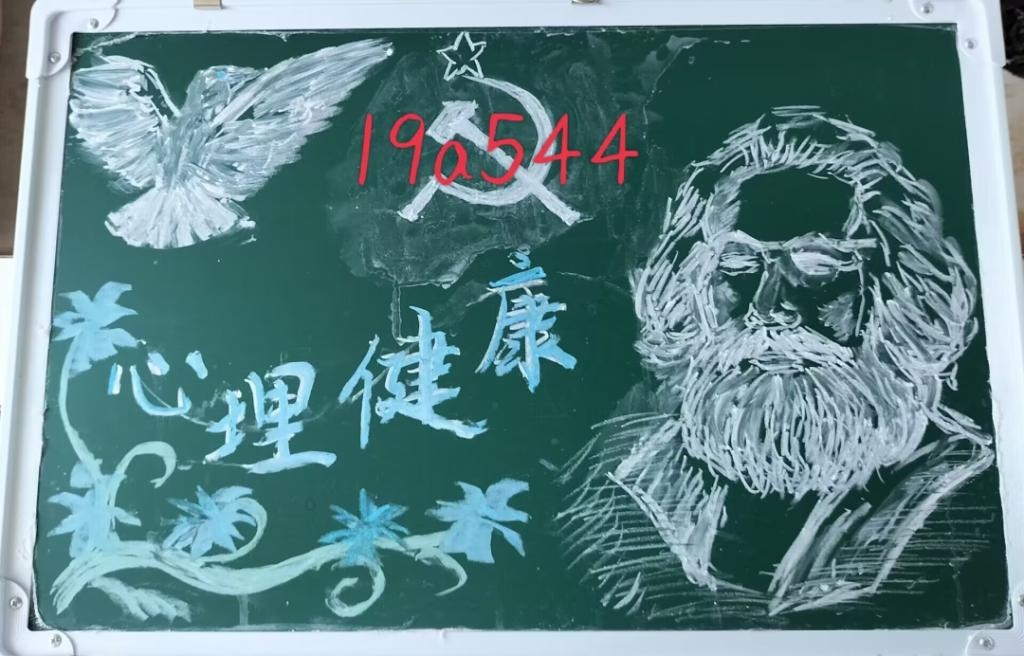 19a544
心理健康